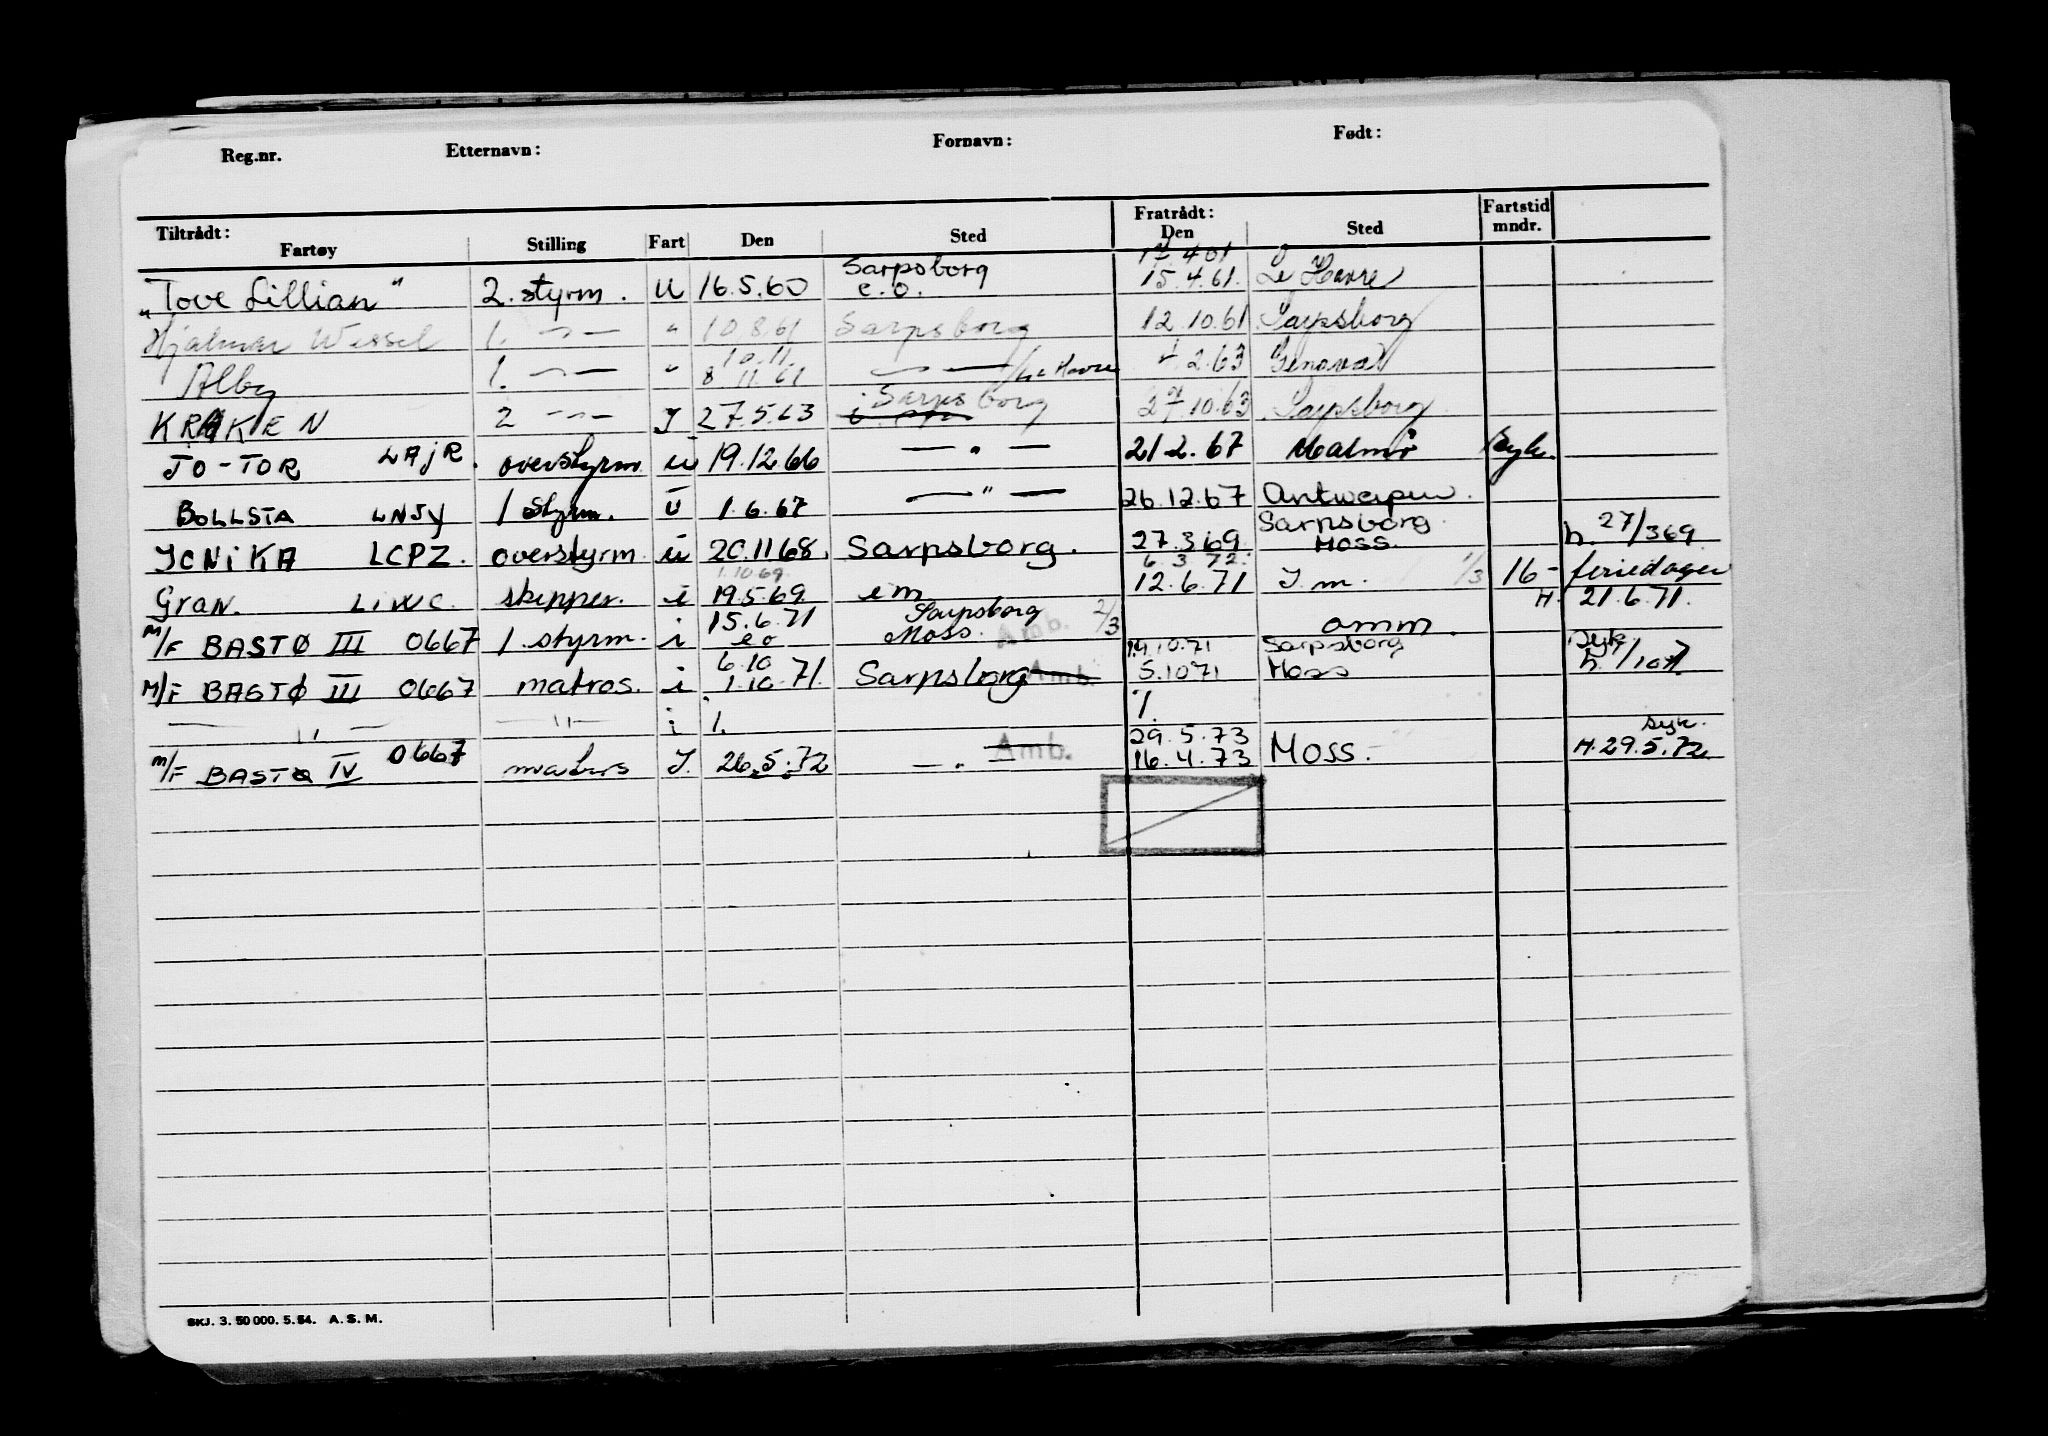 Reg.nr. Etternavn: Fornavn: Født:
Tiltrådt: Fratrådt: Fartstid
Fartøy Stilling Fart Den Sted Den Sted mndr.
Sarpsborg 17.4.61
"Tove Lillian" 2. styrm. U 16.5.60 e.o. 15.4.61. Le Havre
Hjalmar Wessel 1. -"- " 10.8.61 Sarpsborg 12.10.61 Sarpsborg
10.11.
Alby 1. -"- " 8.11.61 -"- /Le Havre 2.63 Genova
Sarpsborg
KRAKEN 2 -"- I 27.5.63 27.10.63 Sarpsborg
JO-TOR LAJR. overstyrm ü 19.12.66 - " - 21.2.67 Malmø Syk.
BOLLSTA LNJY 1 styrm. ü 1.6.67 - " - 26.12.67 Antwerpen.
Sarpsborg.
JONIKA LCPZ. overstyrm. ü 20.11.68. Sarpsborg. 27.3.69. Moss. h. 27/369
1.10.69. 6.3.72.
Gran. LIWC. skipper. i 19.5.69. em 12.6.71 I.m. 1/3 16- feriedager
15.6.71 Sarpsborg 2/3 H. 21.6.71.
M/F BASTØ III 0667 1. styrm. i eo Moss. Amb. omm.
6.10 14.10.71 Sarpsborg Syk.
M/F BASTØ III 0667 matros. i 1.10.71. Sarpsborg Amb. 5.1071 Moss
- " - - " - i 1. %.
29.5.73 syk.
M/F BASTØ IV 0667 matros I. 26.5.72 - " - Amb. 16.4.73 Moss. H.29.5.72
SKJ. 3. 50 000. 5. 54. A. S. M.